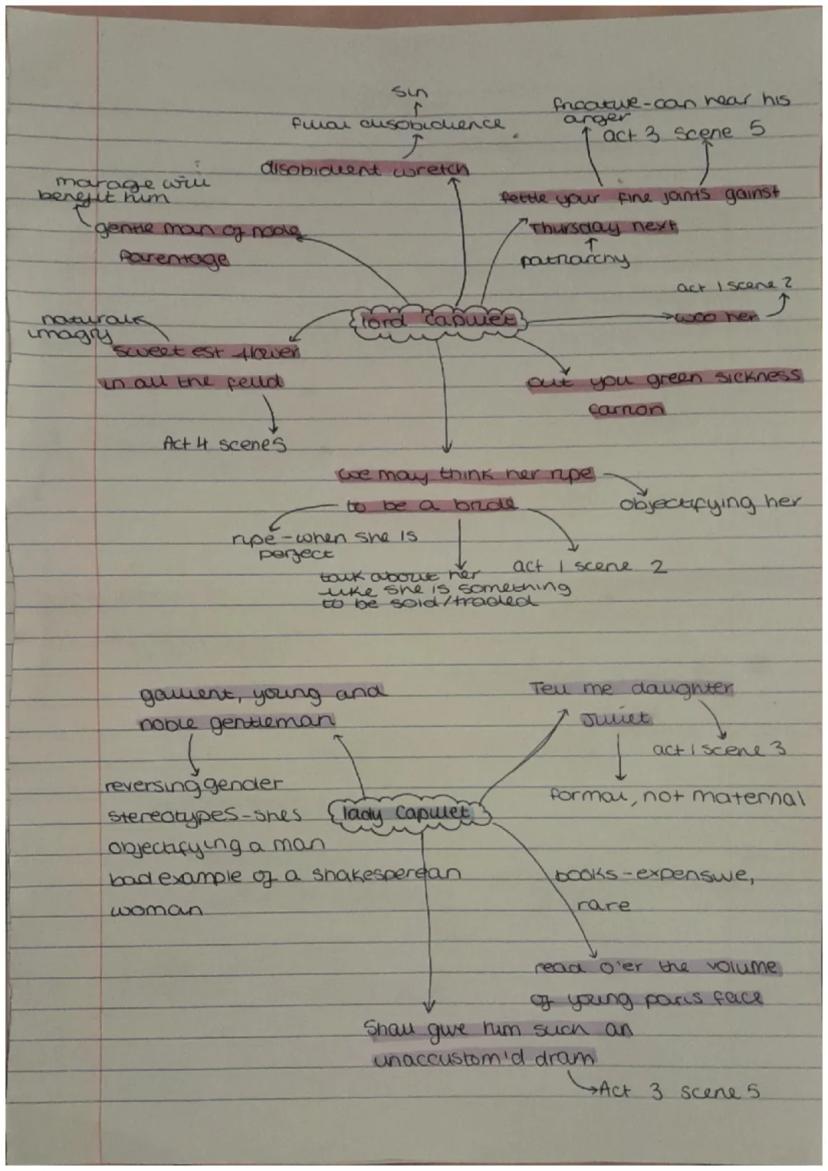 sin
filial disobidience
disobidient wretch
fricative-can hear his
anger
act 3 scene 5
fettle your fine joints gainst
Thursday next
patriarchy
marage will
benefit him
gentle man of noble
Parentage
act 1 scene 2
lord Capulet
woo her
naturals
imagry
sweetest flower
in all the feild
Act 4 scene 5
out you green sickness
carrion
we may think her ripe
to be a bride
objectifying her
ripe-when she is
perfect
act 1 scene 2
talk about her
like she is something
to be sold/traded
gallient, young and
noble gentleman
Tell me daughter
Juliet
act 1 scene 3
formal, not maternal
reversing gender
stereotypes-shes
objectifying a man
bad example of a shakesperean
woman
lady Capulet
books-expensive,
rare
read o'er the volume
of young paris face
Shall give him such an
unaccustom'd dram
Act 3 scene 5